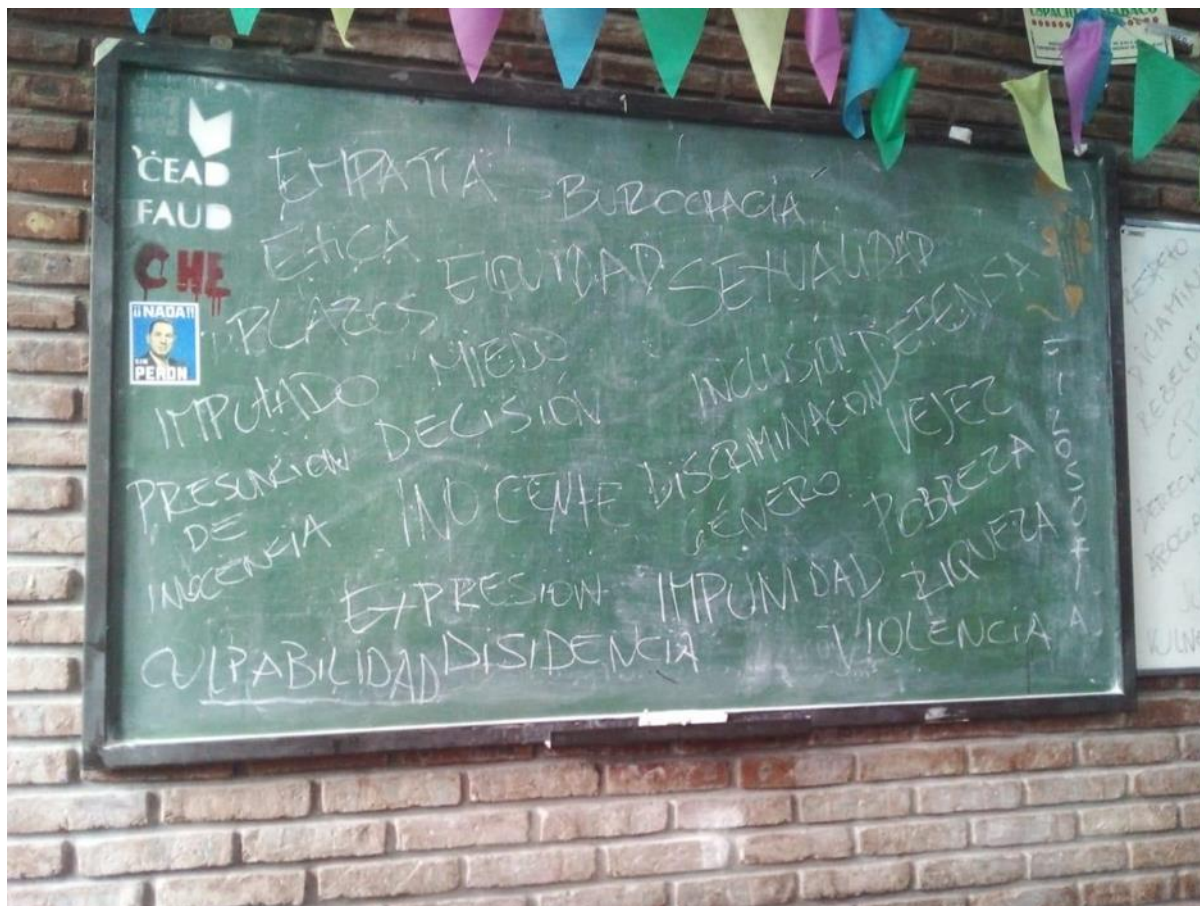 CEAD
FAUD
CHE
¡¡NADA!!
SIN
PERON
EMPATÍA BUROCRACIA
ETICA EQUIDAD SEXUALIDAD
PLAZOS MIEDO INCLUSION DEFENSA
IMPUTADO DECISIÓN DISCRIMINACON VEJEZ
PRESUNCION
DE
INOCENCIA
INOCENTE GÉNERO POBREZA
EXPRESION IMPUNIDAD RIQUEZA
CULPABILIDAD DISIDENCIA VIOLENCIA
FILOSOFIA
RESPETO